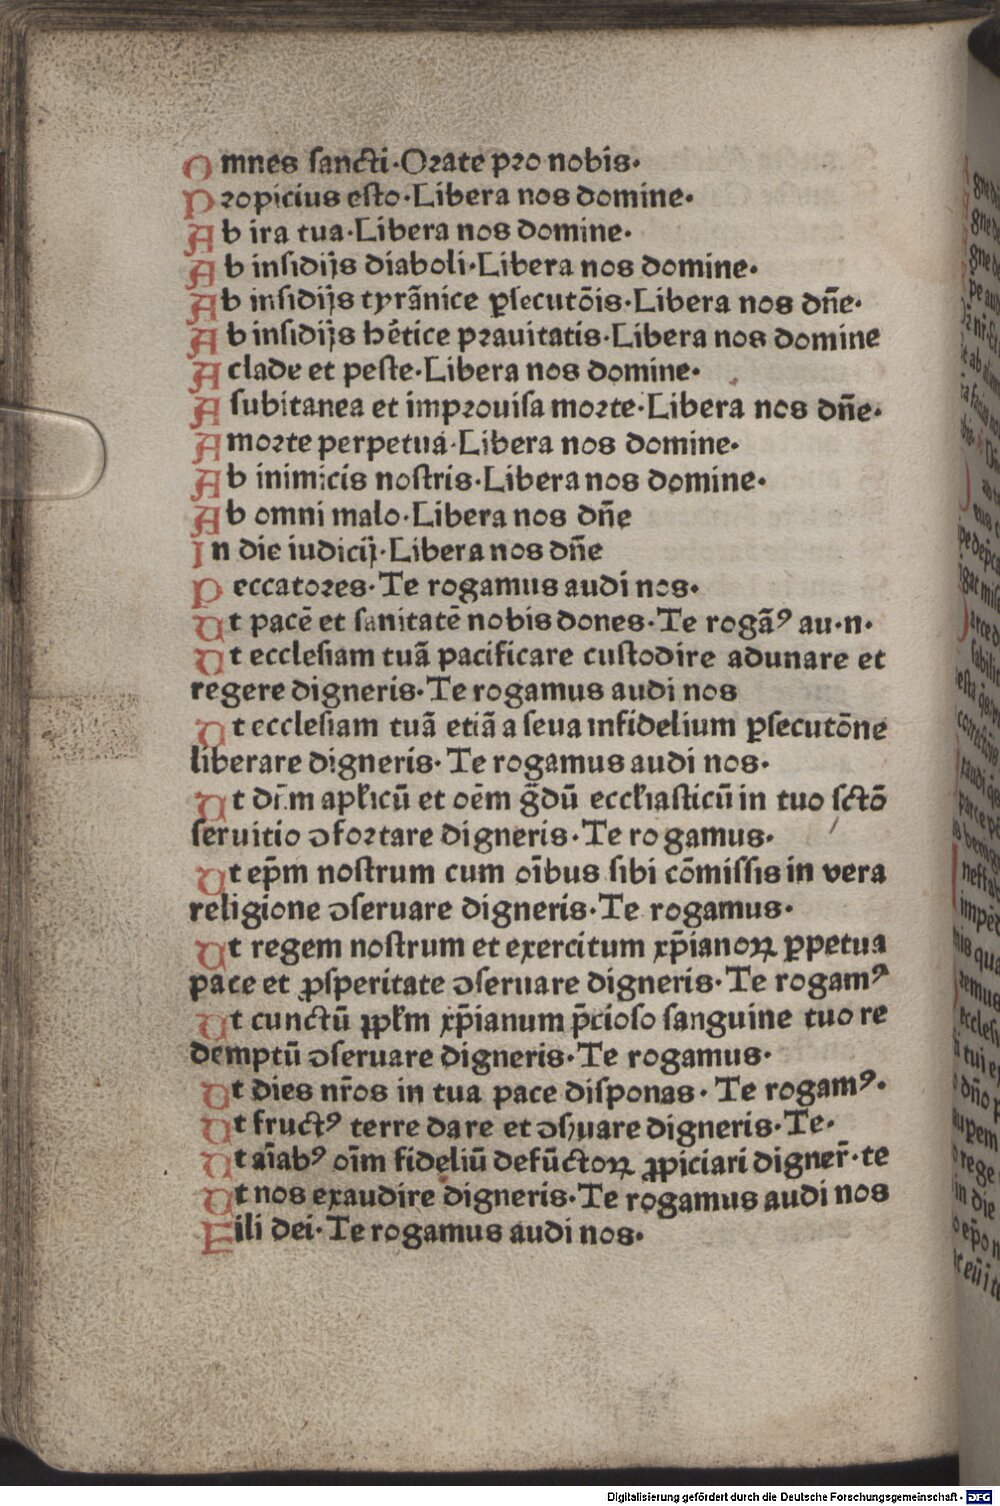 Omnes sancti·Orate pro nobis·
Propicius esto·Libera nos domine·
Ab ira tua·Libera nos domine·
Ab insidijs diaboli·Libera nos domine·
Ab insidijs tyrãnice ꝑsecutõis·Libera nos dñe·
Ab insidijs hẽtice prauitatis·Libera nos domine
A clade et peste·Libera nos domine·
A subitanea et improuisa morte·Libera nos dñe·
A morte perpetua·Libera nos domine·
Ab inimicis nostris·Libera nos domine·
Ab omni malo·Libera nos dñe
In die iudicij·Libera nos dñe
Peccatores·Te rogamus audi nos·
Ut pacẽ et sanitatẽ nobis dones·Te rogãꝰ au·n·
Ut ecclesiam tuã pacificare custodire adunare et
regere digneris·Te rogamus audi nos
Ut ecclesiam tuã etiã a seua infidelium ꝑsecutõne
liberare digneris·Te rogamus audi nos·
Ut apl̃icũ et oẽm g̃dũ eccl̃iasticũ in tuo sctõ
seruitio ↄfortare digneris·Te rogamus·
Ut ep̃m nostrum cum oĩbus sibi cõmissis in vera
religione ↄseruare digneris·Te rogamus·
Ut regem nostrum et exercitum xp̃ianoꝝ ꝑpetua
pace et ꝓsperitate ↄseruare digneris·Te rogamꝰ
Ut cunctũ ꝓpl̃m xp̃ianum p̃cioso sanguine tuo re
demptũ ↄseruare digneris·Te rogamus·
Ut dies nr̃os in tua pace disponas· Te rogamꝰ·
Ut fructꝰ terre dare et ↄẜuare digneris·Te·
Ut aĩabꝰ oĩm fideliũ defũctoꝝ ꝓpiciari digner̃·te
Ut nos exaudire digneris·Te rogamus audi nos
Fili dei·Te rogamus audi nos·
Digitalisierung gefördert durch die Deutsche Forschungsgemeinschaft - DFG